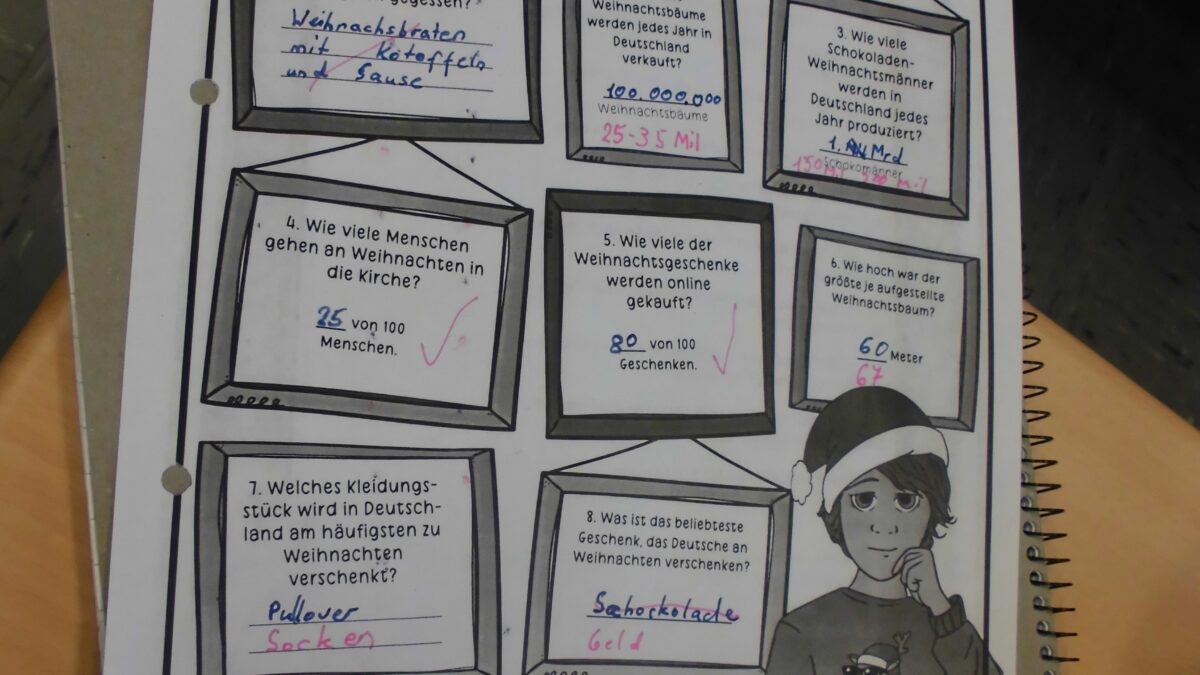 gegessen?
Weihrachsbraten
mit Kotoffeln
und Sause
Weihnachtsbäume
werden jedes Jahr in
Deutschland
verkauft?
100.000.000
Weihnachtsbäume
25-35 Mil
3. Wie viele
Schokoladen-
Weihnachtsmänner
werden in
Deutschland jedes
Jahr produziert?
1. Mrd
Schokomänner
150
4. Wie viele Menschen
gehen an Weihnachten in
die Kirche?
25 von 100
Menschen.
5. Wie viele der
Weihnachtsgeschenke
werden online
gekauft?
80 von 100
Geschenken.
6. Wie hoch war der
größte je aufgestellte
Weihnachtsbaum?
60 Meter
67
7. Welches Kleidungs-
stück wird in Deutsch-
land am häufigsten zu
Weihnachten
verschenkt?
Pullover
Socken
8. Was ist das beliebteste
Geschenk, das Deutsche an
Weihnachten verschenken?
Schorkolade
Geld